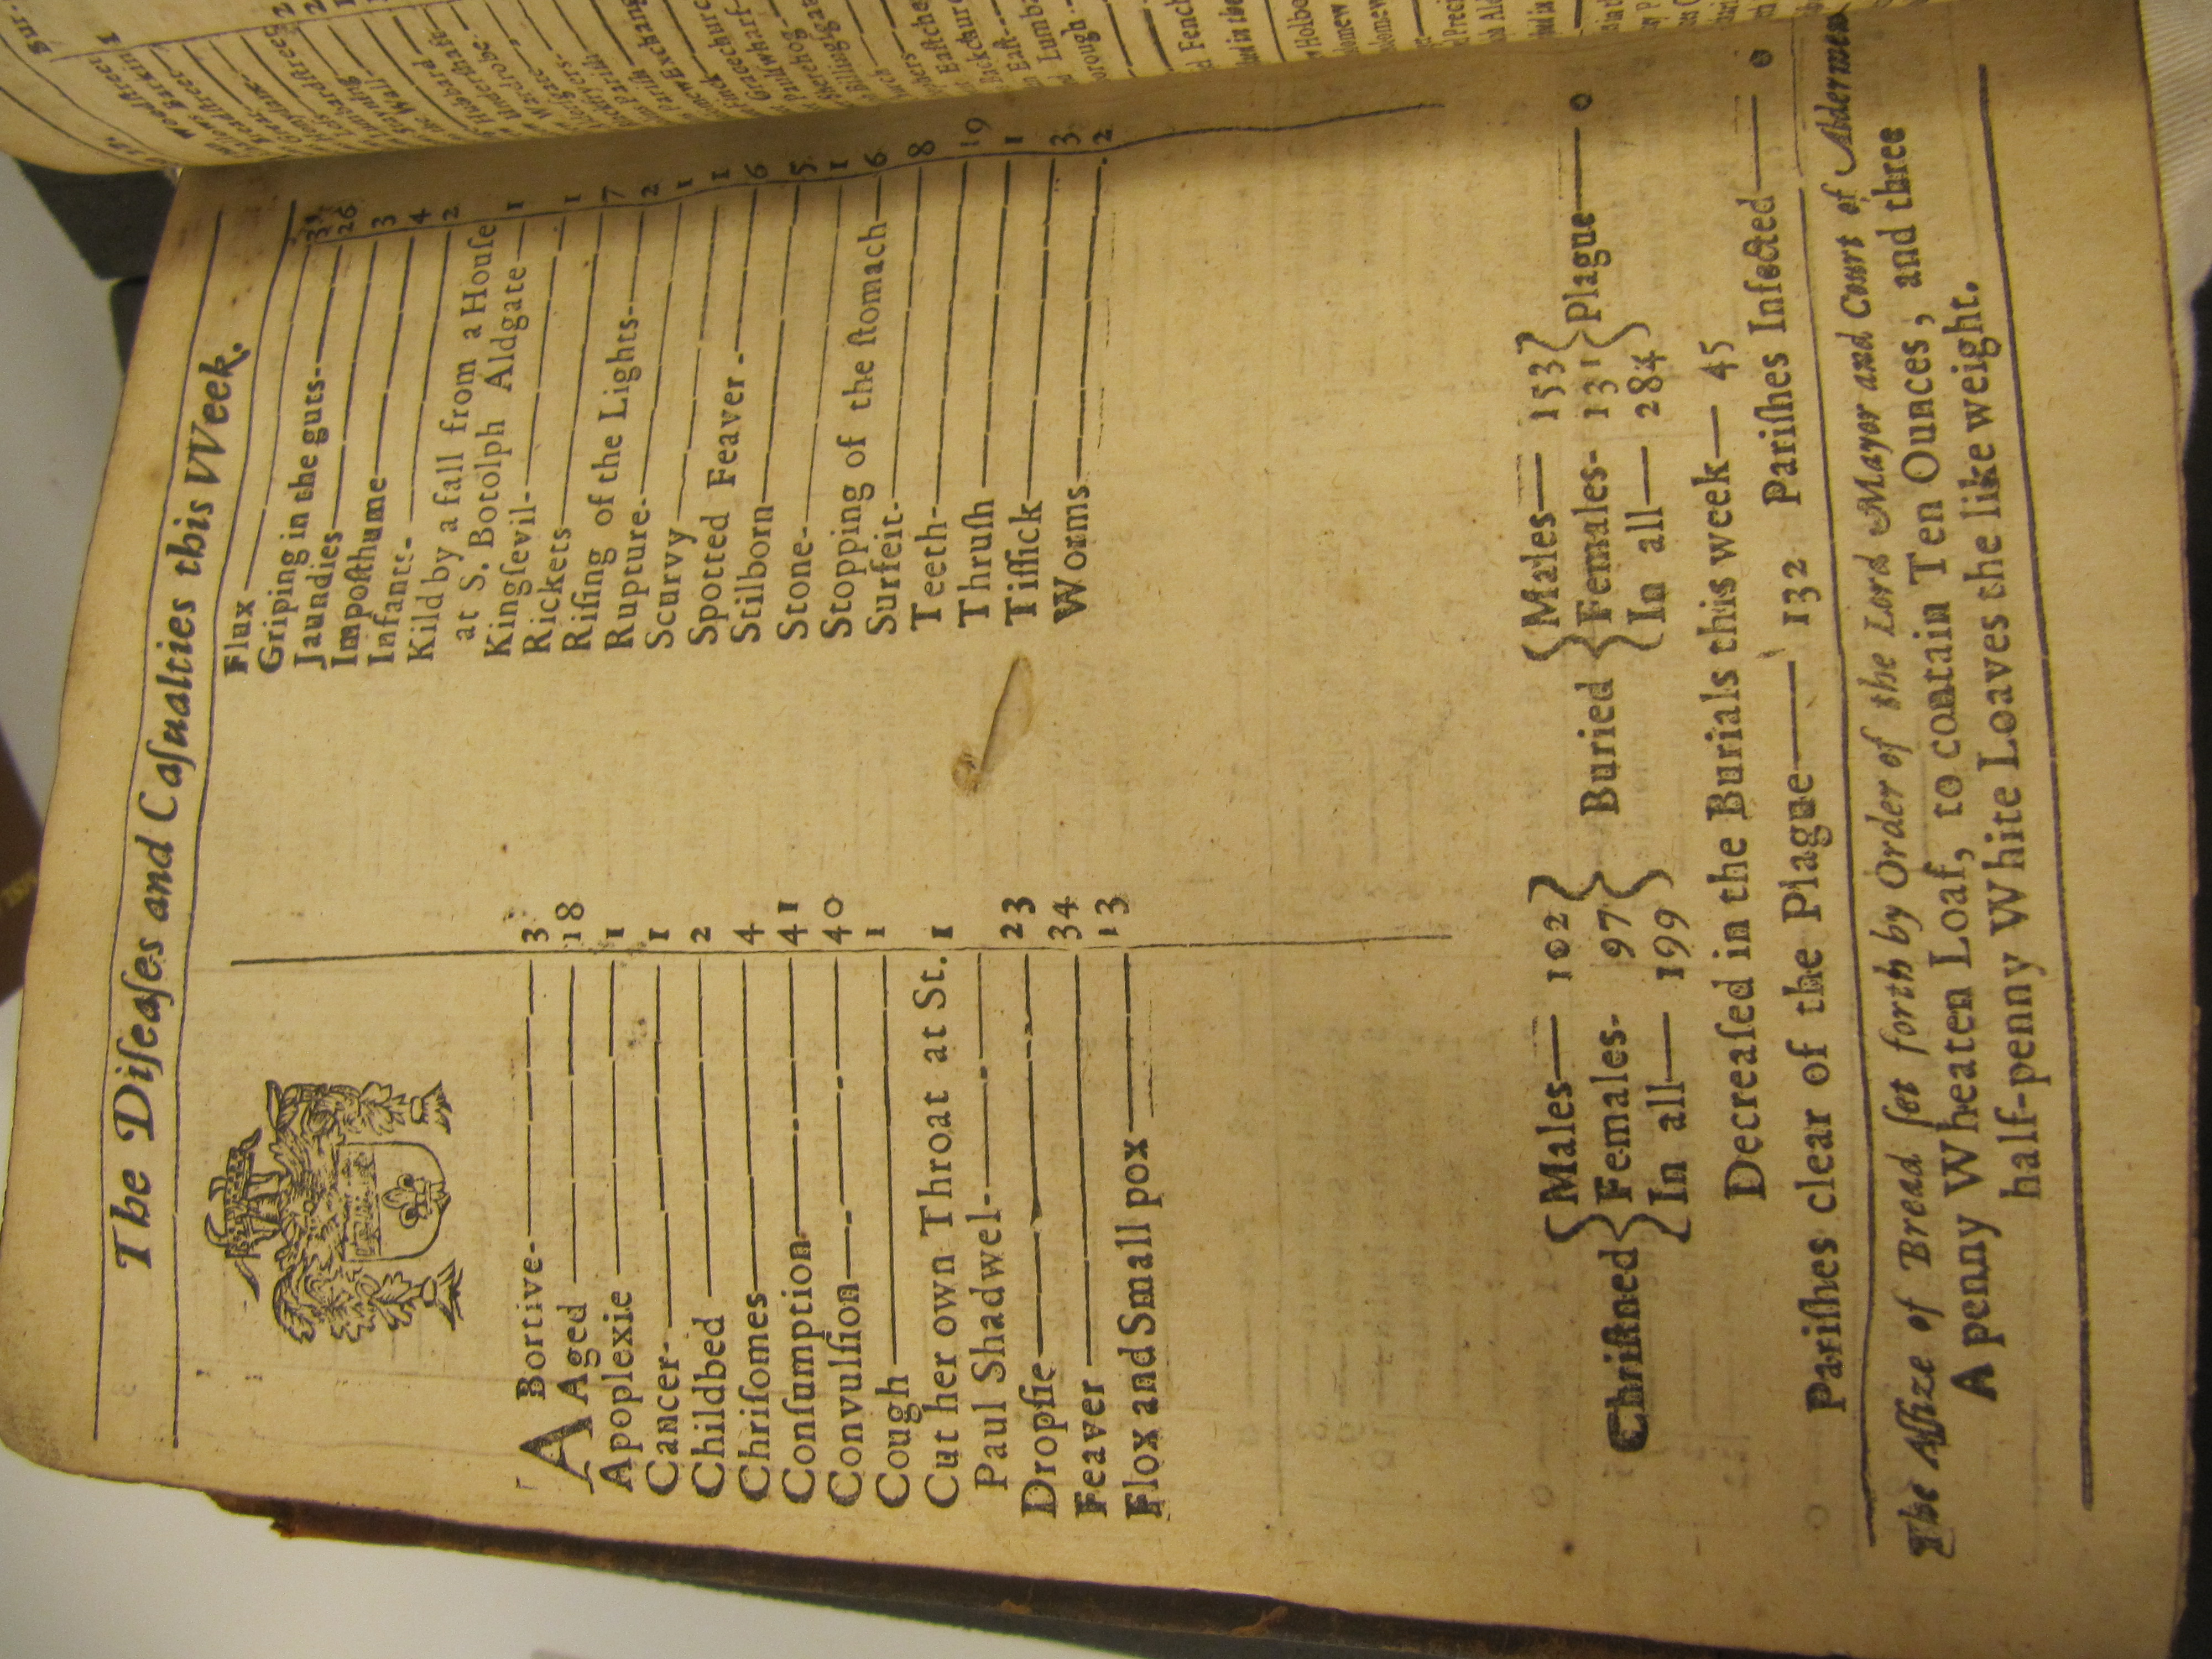 The Diſeaſes and Caſualties this Week.
ABortive 3
Aged 18
Apoplexie 1
Cancer 1
Childbed 2
Chriſomes 4
Conſumption 41
Convulſion 40
Cough 1
Cut her own Throat at St.
Paul Shadwel 1
Dropſie 23
Feaver 34
Flox and Small pox 13
Flux 3
Griping in the guts 26
Jaundies 3
Impoſthume 4
Infants 2
Kild by a fall from a Houſe
at S. Botolph Aldgate 1
Kingſevil 1
Rickets 7
Riſing of the Lights 2
Rupture 1
Scurvy 1
Spotted Feaver 6
Stilborn 5
Stone 1
Stopping of the ſtomach 6
Surfeit 8
Teeth 19
Thruſh 1
Tiſſick 3
Worms 2
Chriſtned
Males 102
Females 97
In all 199
Buried
Males 153
Females 131
In all 284
Plague 0
Decreaſed in the Burials this week 45
Pariſhes clear of the Plague 132 Pariſhes Infected 0
The Aſſize of Bread ſet forth by Order of the Lord Mayor and Court of Aldermen
A penny Wheaten Loaf, to contain Ten Ounces, and three
half-penny White Loaves the like weight.